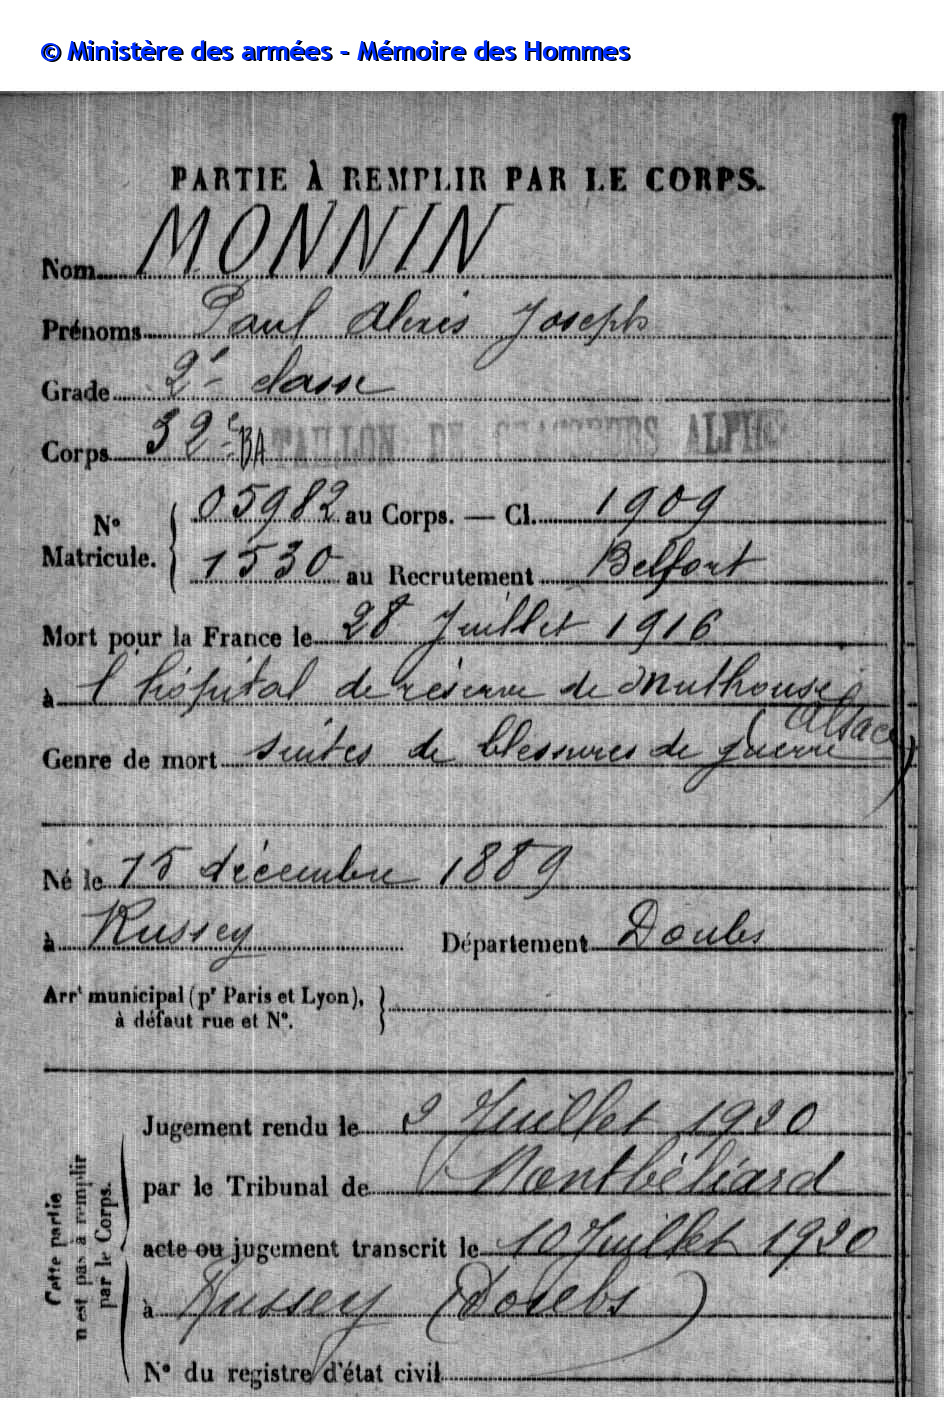 © Ministère des armées - Mémoire des Hommes
PARTIE À REMPLIR PAR LE CORPS.
Nom MONNIN
Prénoms Paul Alexis Joseph
Grade 2e classe
Corps 32e BATAILLON DE CHASSEURS ALPINS
No Matricule. { 05982 au Corps. — Cl. 1909
1530 au Recrutement Belfort
Mort pour la France le 28 Juillet 1916
à l'hôpital de réserve de Mulhouse
(Alsace)
Genre de mort suites de blessures de guerre
Né le 15 décembre 1889
à Russey Département Doubs
Arrt municipal (pr Paris et Lyon),
à défaut rue et No. }
Cette partie
n'est pas à remplir
par le Corps.
Jugement rendu le 2 Juillet 1920
par le Tribunal de Montbéliard
acte ou jugement transcrit le 10 Juillet 1920
à Russey (Doubs)
No du registre d'état civil